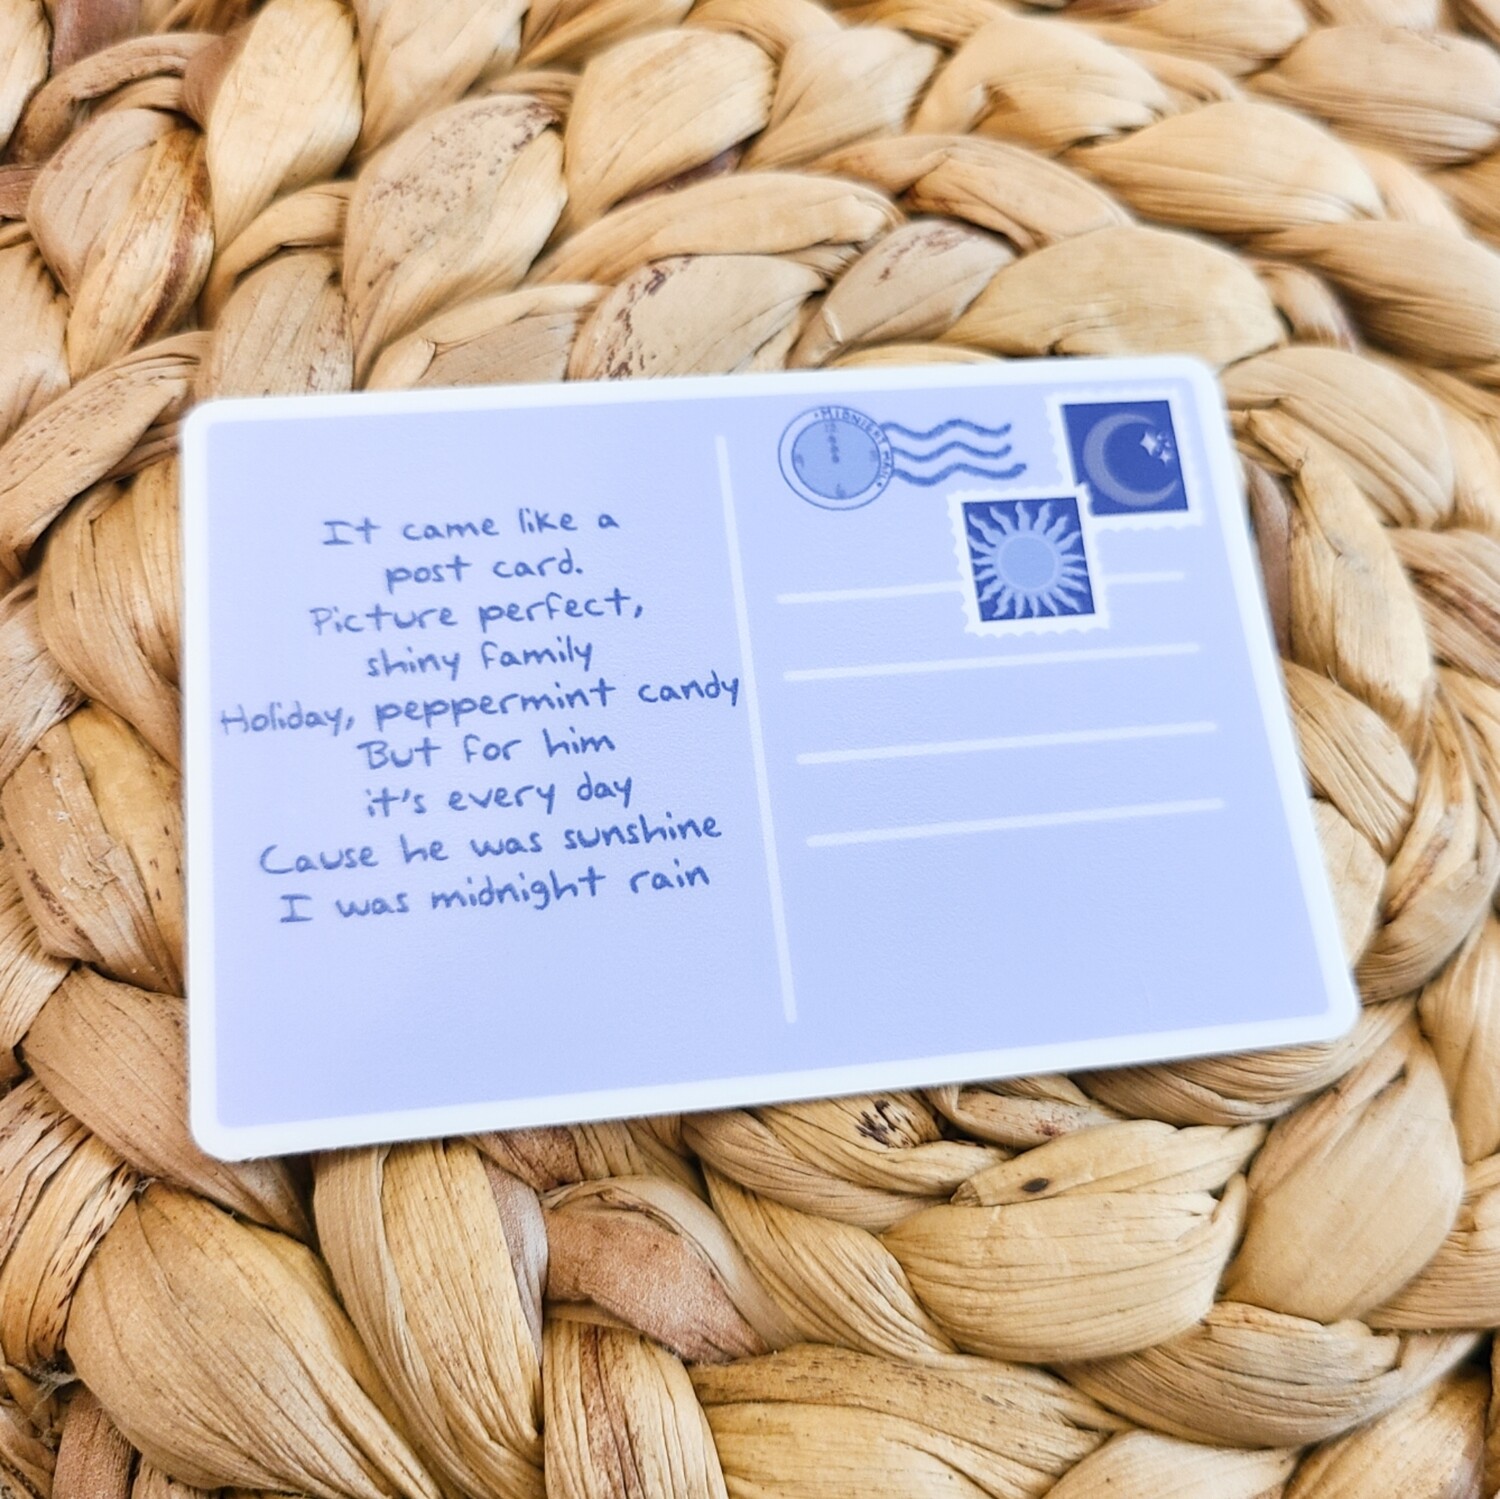 It came like a
post card.
Picture perfect,
shiny family
Holiday, peppermint candy
But for him
it's every day
Cause he was sunshine
I was midnight rain
MIDNIGHT